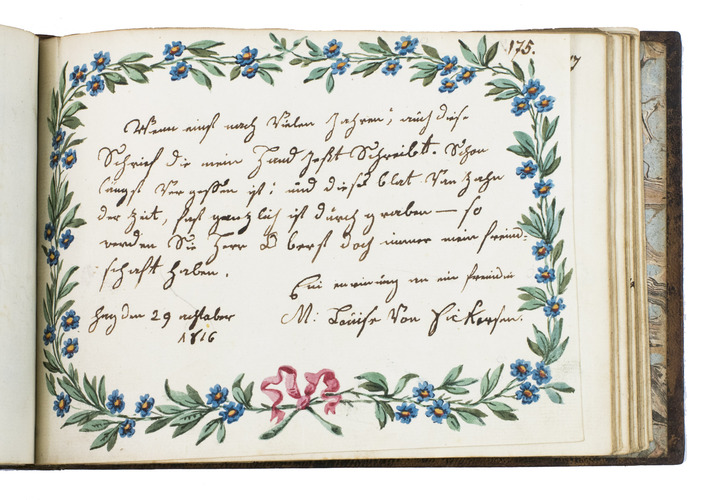 175.
Wenn einst nach Vielen Jahren, auch diese
Schrift die mein Hand jetzt Schreibt. Schon
längst Vergessen ist: und diese blat Von Zahn
der Zeit, fast gäntzlich ist dürch graben — so
werden Sie Herr Oberst doch immer mein freünd-
schaft haben.
Ein erinrüng an ein freündin
M: Loüise Von
den 29 octtober
1816